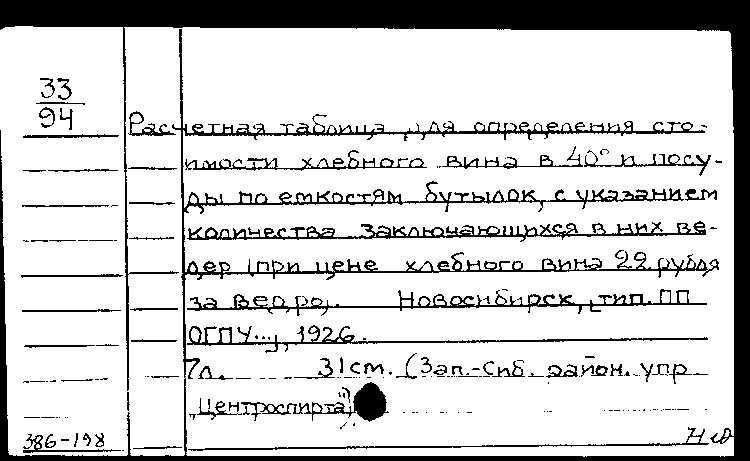 33
94
Расчетная таблица для определения сто-
имости хлебного вина в 40° и посу-
ды по емкостям бутылок, с указанием
количества заключающихся в них ве-
дер (при цене хлебного вина 22 рубля
за ведро). Новосибирск, [тип. ПП
ОГПУ...], 1926.
7л. 31см. (Зап.-Сиб. район. упр
„Центроспирта")
386-198